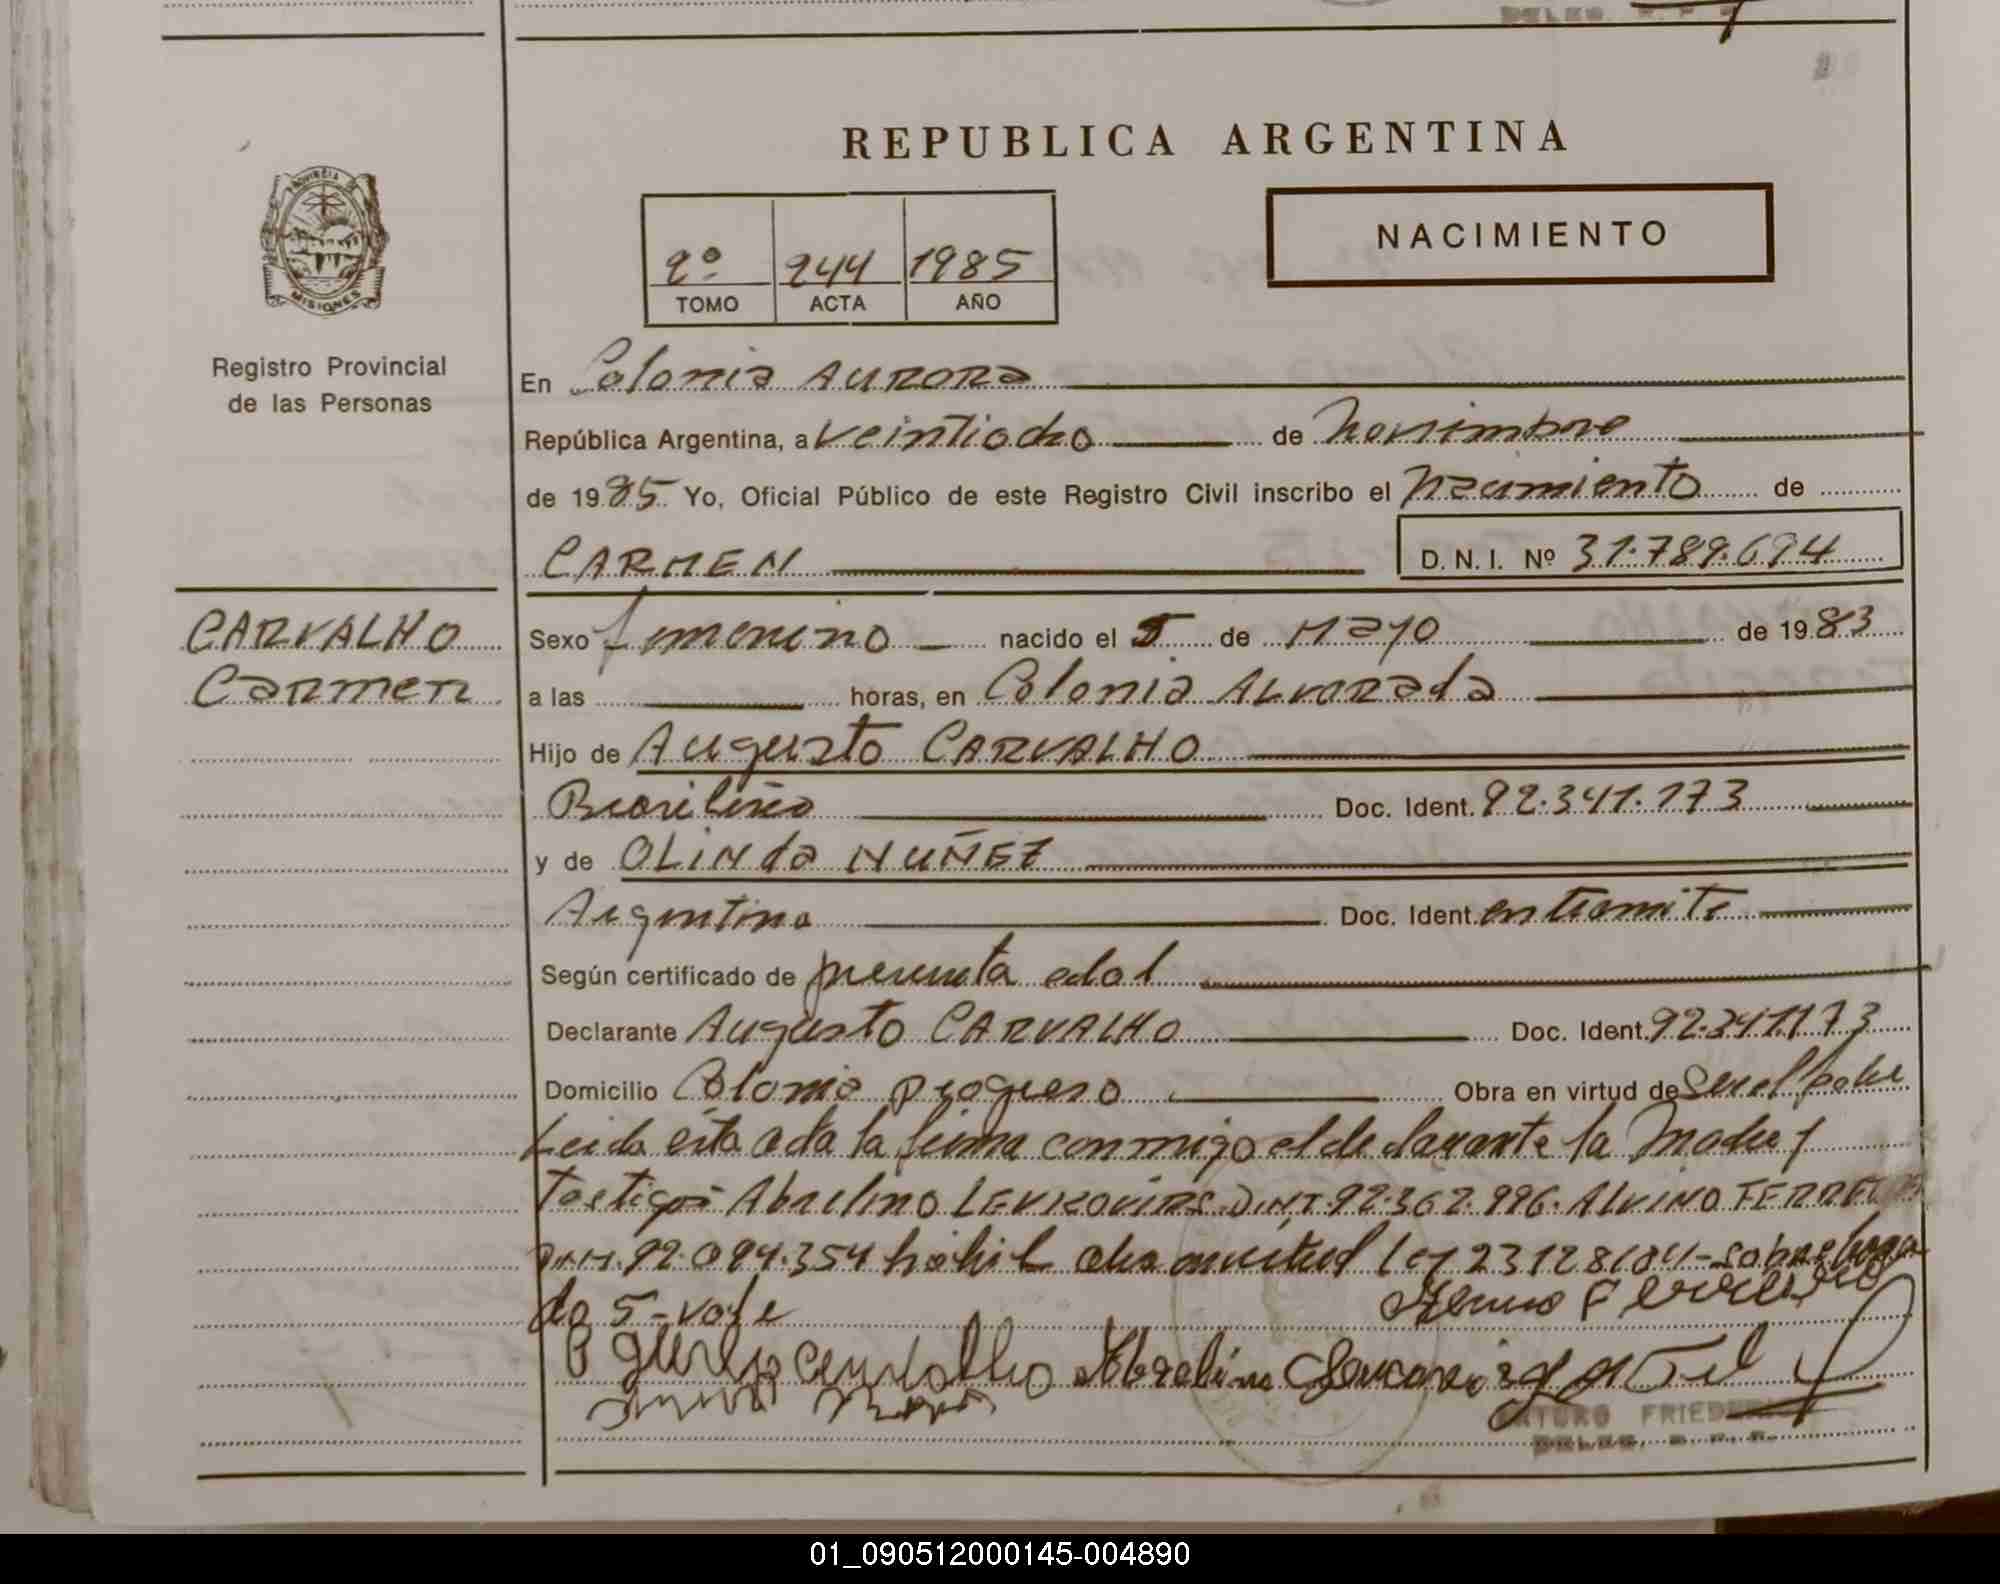 REPUBLICA ARGENTINA
PROVINCIA DE
MISIONES
Registro Provincial
de las Personas
2º 244 1985
TOMO ACTA AÑO
NACIMIENTO
En Colonia AURORA
República Argentina, a veintiocho de noviembre
de 1985 Yo, Oficial Público de este Registro Civil inscribo el nacimiento de
CARMEN D. N. I. Nº 31.789.694
CARVALHO
Carmen
Sexo femenino nacido el 5 de MAYO de 1983
a las horas, en Colonia ALVORADA
Hijo de Augusto CARVALHO
Brasileño Doc. Ident. 92.341.173
y de OLINDA NUÑEZ
Argentina Doc. Ident. en tramite
Según certificado de presunta edad
Declarante Augusto CARVALHO Doc. Ident. 92.341.173
Domicilio Colonia progreso Obra en virtud de ser el padre
Leida esta acta la firma conmigo el declarante la Madre y
Testigos Abaelino D.N.I. 92.362.996. ALVINO
D.N.I. 92.094.354 habil en virtud Ley 23128/84 - sobreborra
do 5 - vale
ARTURO
01_090512000145-004890